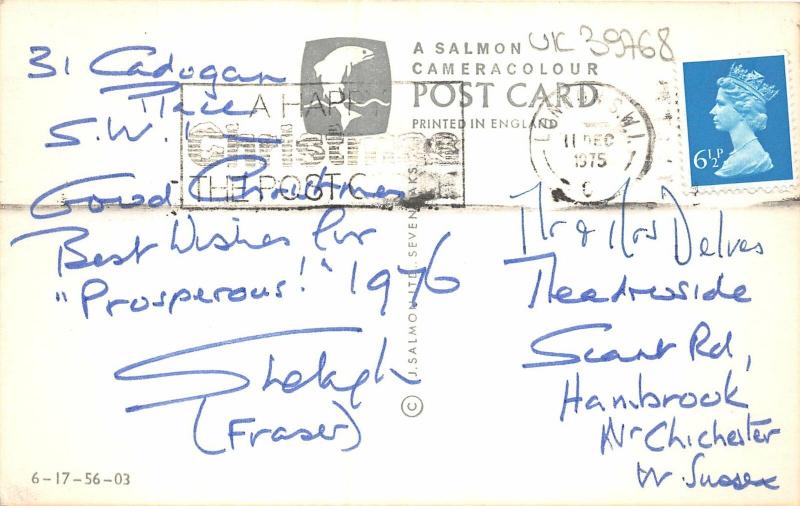 A SALMON
CAMERACOLOUR
POST CARD
PRINTED IN ENGLAND
UK 39768
6½P
LONDON S.W.1
11 DEC
1975
A HAPPY
Christmas
THE POST
31 Cadogan
Place
S.W.1
Good Christmas
Best Wishes for
"Prosperous!" 1976
Shelagh
(Fraser)
Mr & Mrs Delves
Scant Rd,
Hambrook
Nr Chichester
W. Sussex
© J. SALMON LTD. SEVENOAKS
6-17-56-03